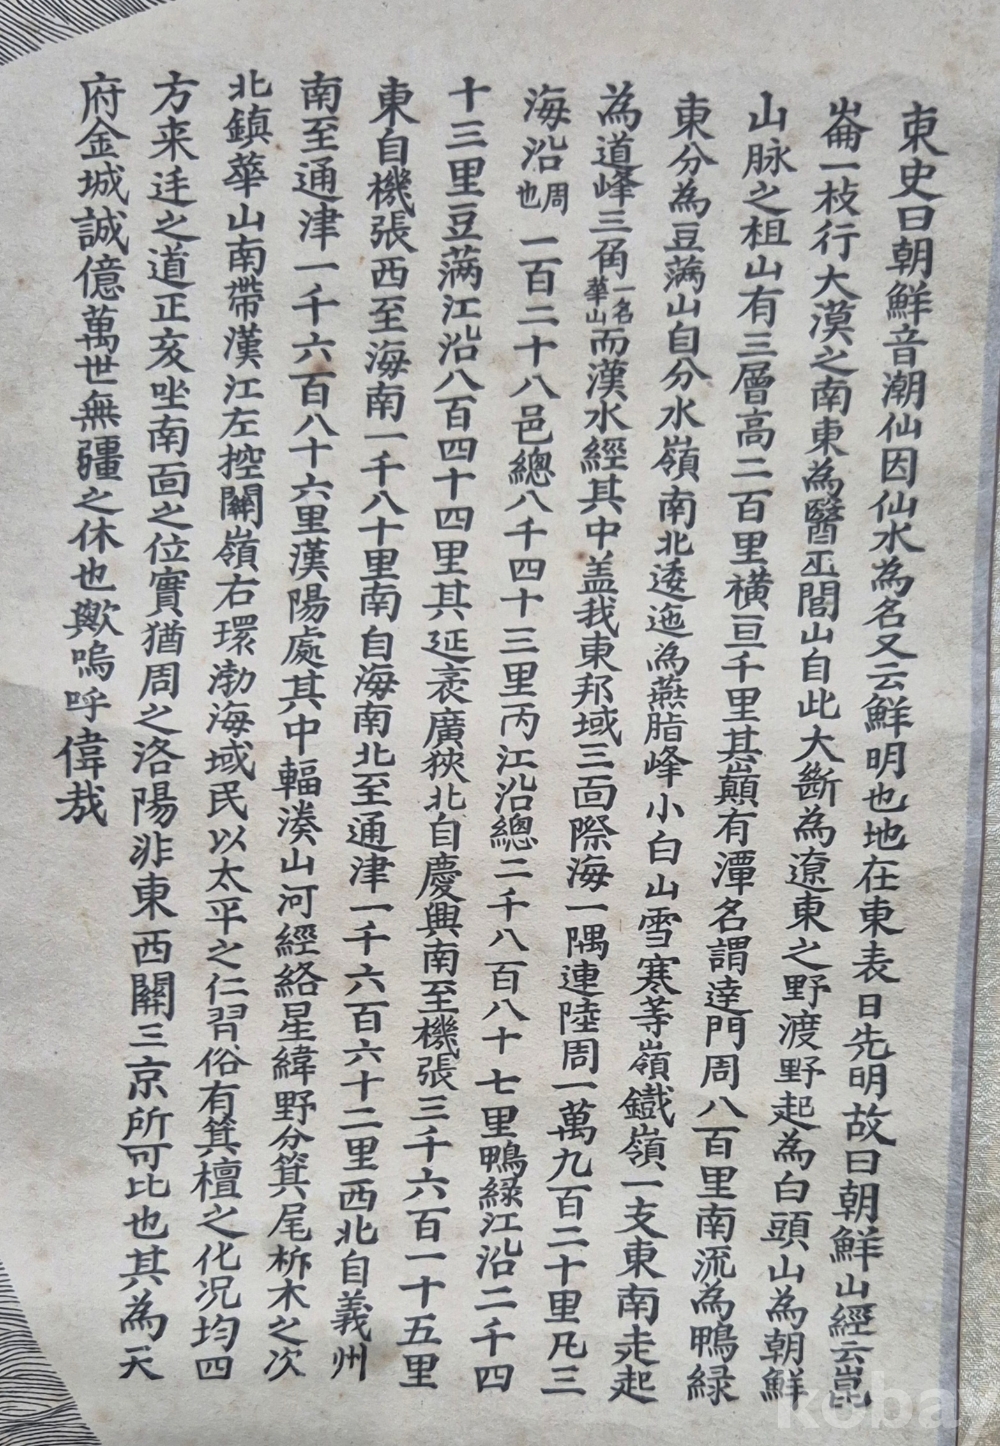 東史曰朝鮮音潮仙因仙水為名又云鮮明也地在東表日先明故曰朝鮮山經云崑
崙一枝行大漠之南東為醫巫閭山自此大斷為遼東之野渡野起為白頭山為朝鮮
山脉之祖山有三層高二百里橫亘千里其巔有潭名謂達門周八百里南流為鴨緑
東分為豆滿山自分水嶺南北逶迤為燕脂峰小白山雪寒等嶺鐵嶺一支東南走起
為道峰三角一名華山而漢水經其中盖我東邦域三面際海一隅連陸周一萬九百二十里凡三
海沿周也一百二十八邑總八千四十三里丙江沿總二千八百八十七里鴨緑江沿二千四
十三里豆滿江沿八百四十四里其延袤廣狹北自慶興南至機張三千六百一十五里
東自機張西至海南一千八十里南自海南北至通津一千六百六十二里西北自義州
南至通津一千六百八十六里漢陽處其中輻湊山河經絡星緯野分箕尾析木之次
北鎮華山南帶漢江左控關嶺右環渤海域民以太平之仁習俗有箕檀之化况均四
方来迋之道正亥坐南面之位實猶周之洛陽非東西關三京所可比也其為天
府金城誠億萬世無疆之休也歟嗚呼偉哉
kobay